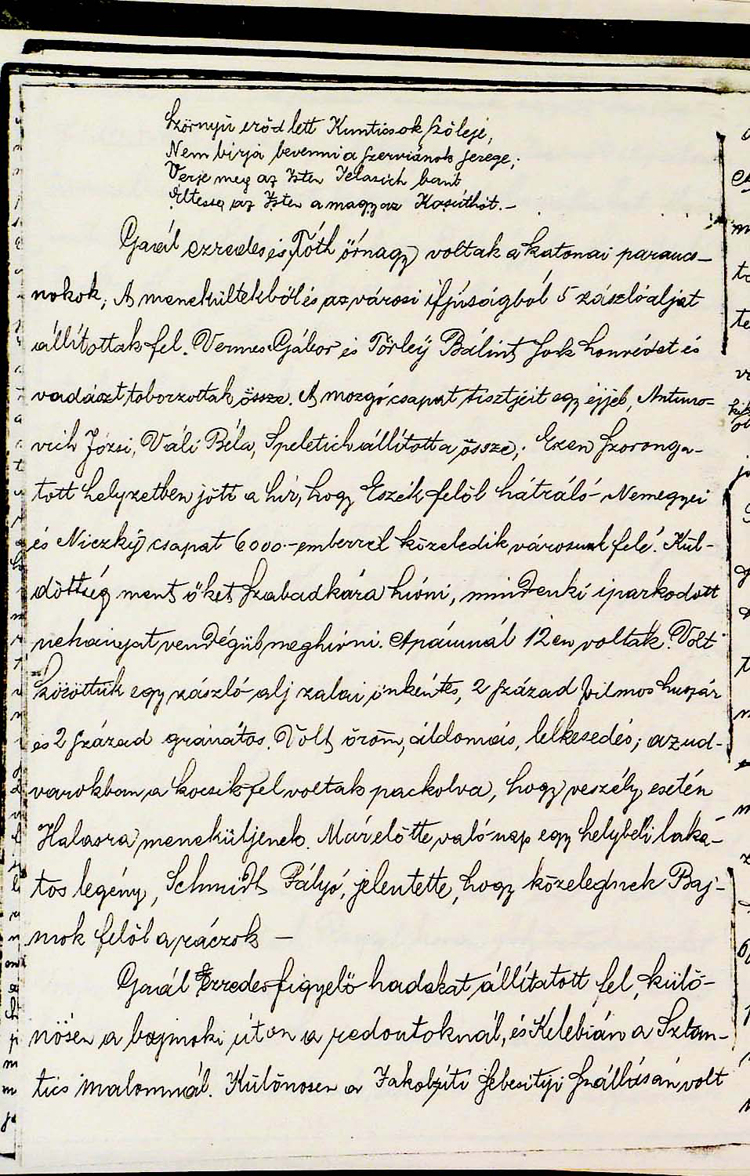 Szörnyü eröd lett Kunticsok szöleje,
Nem birja bevenni a szerviánok serege,
Verje meg az Isten Jelasich bánt
Éltesse az Isten a magyar Kosúthot. –
Gaál ezredes és Tóth őrnagy voltak a katonai parancs-
nokok; A menekültekből és az városi ifjúságból 5 zászlóaljat
állítottak fel. Vermes Gábor és Törley Bálint sok honvédet és
vadászt toborzottak össze. A mozgó csapat tisztjeit egy éjjel, Antuno-
vich Józsi, Váli Béla, Speletich állította össze; Ezen szoronga-
tott helyzetben jött a hir, hogy Eszék felöl hátráló Nemegyei
és Niczky csapat 6000 – emberrel közeledik városunk felé. Kül-
döttség ment öket Szabadkára hívni, mindenki iparkodott
nehányat vendégül meghivni. Apámnál 12 en voltak. Volt
közöttük egy zászló alj zalai önkéntes, 2 század Vilmos huszár
és 2 század gránátos. Volt öröm, áldomás, lelkesedés; az ud-
varokban a kocsik fel voltak packolva, hogy veszély esetén
Halasra meneküljenek. Már elötte való nap egy helybeli laka-
tos legény, Schmidt Pályó, jelentette, hogy közelednek Baj-
mok felöl a ráczok –
Gaál Ezredes figyelö hadakat állítatott fel, külö-
nösen a bajmoki úton a redoutoknál, és Kelebián a Sztan-
tics malomnál. Különosen a Jakobsiti Sebesityi szállásán volt